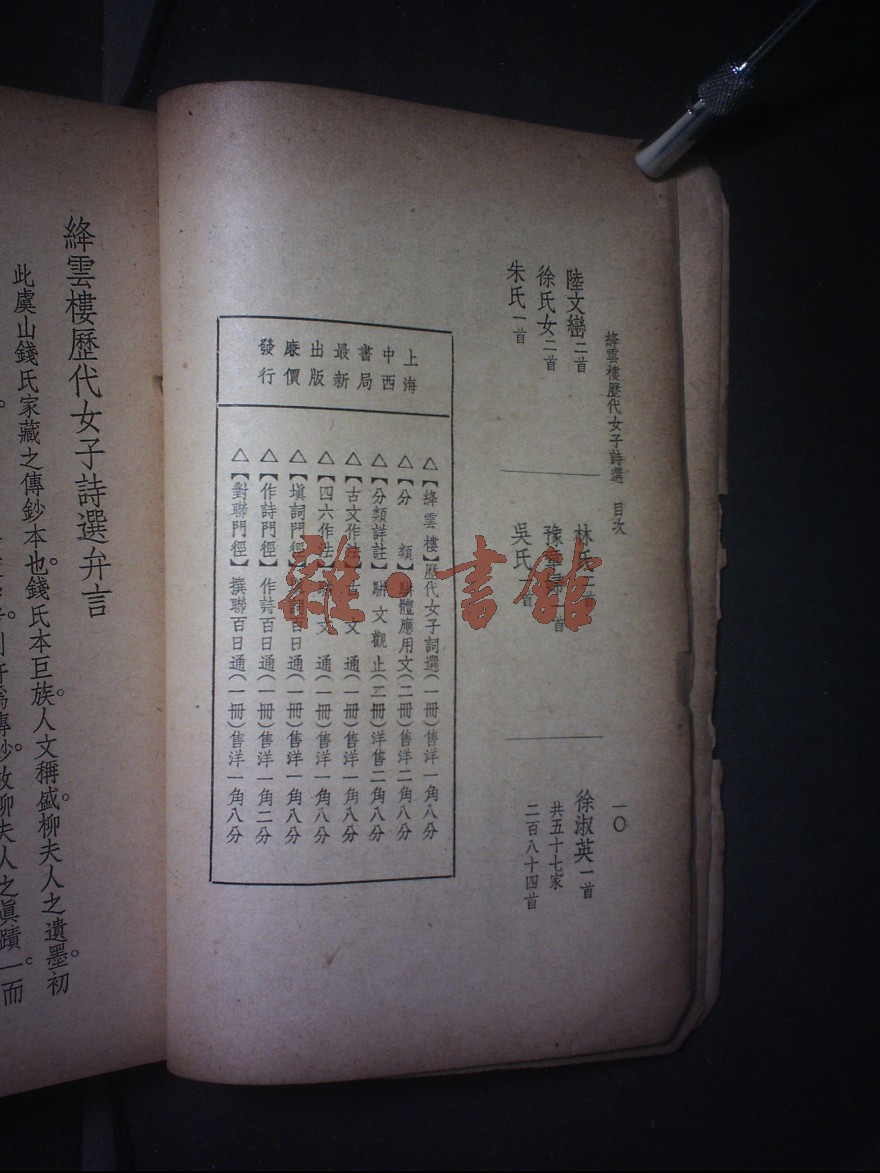 絳雲樓歷代女子詩選　目次　一〇
陸文巒二首
徐氏女二首
朱氏一首
林氏二首
豫章婦　首
吳氏　首
徐淑英一首
共五十七家
二百八十四首
上海
中西
書局
最新
出版
廉價
發行
△【絳雲樓】歷代女子詞選（一冊）售洋一角八分
△【分類】駢體應用文（二冊）售洋二角八分
△【分類詳註】駢文觀止（二冊）洋售二角八分
△【古文作法】古文　通（一冊）售洋一角八分
△【四六作法】　文　通（一冊）售洋一角八分
△【塡詞門徑】　詞百日通（一冊）售洋一角八分
△【作詩門徑】作詩百日通（一冊）售洋一角二分
△【對聯門徑】撰聯百日通（一冊）售洋一角八分
絳雲樓歷代女子詩選弁言
此虞山錢氏家藏之傳鈔本也。錢氏本巨族。人文稱盛。柳夫人之遺墨。初
故柳夫人之眞蹟。一而
雜·書館